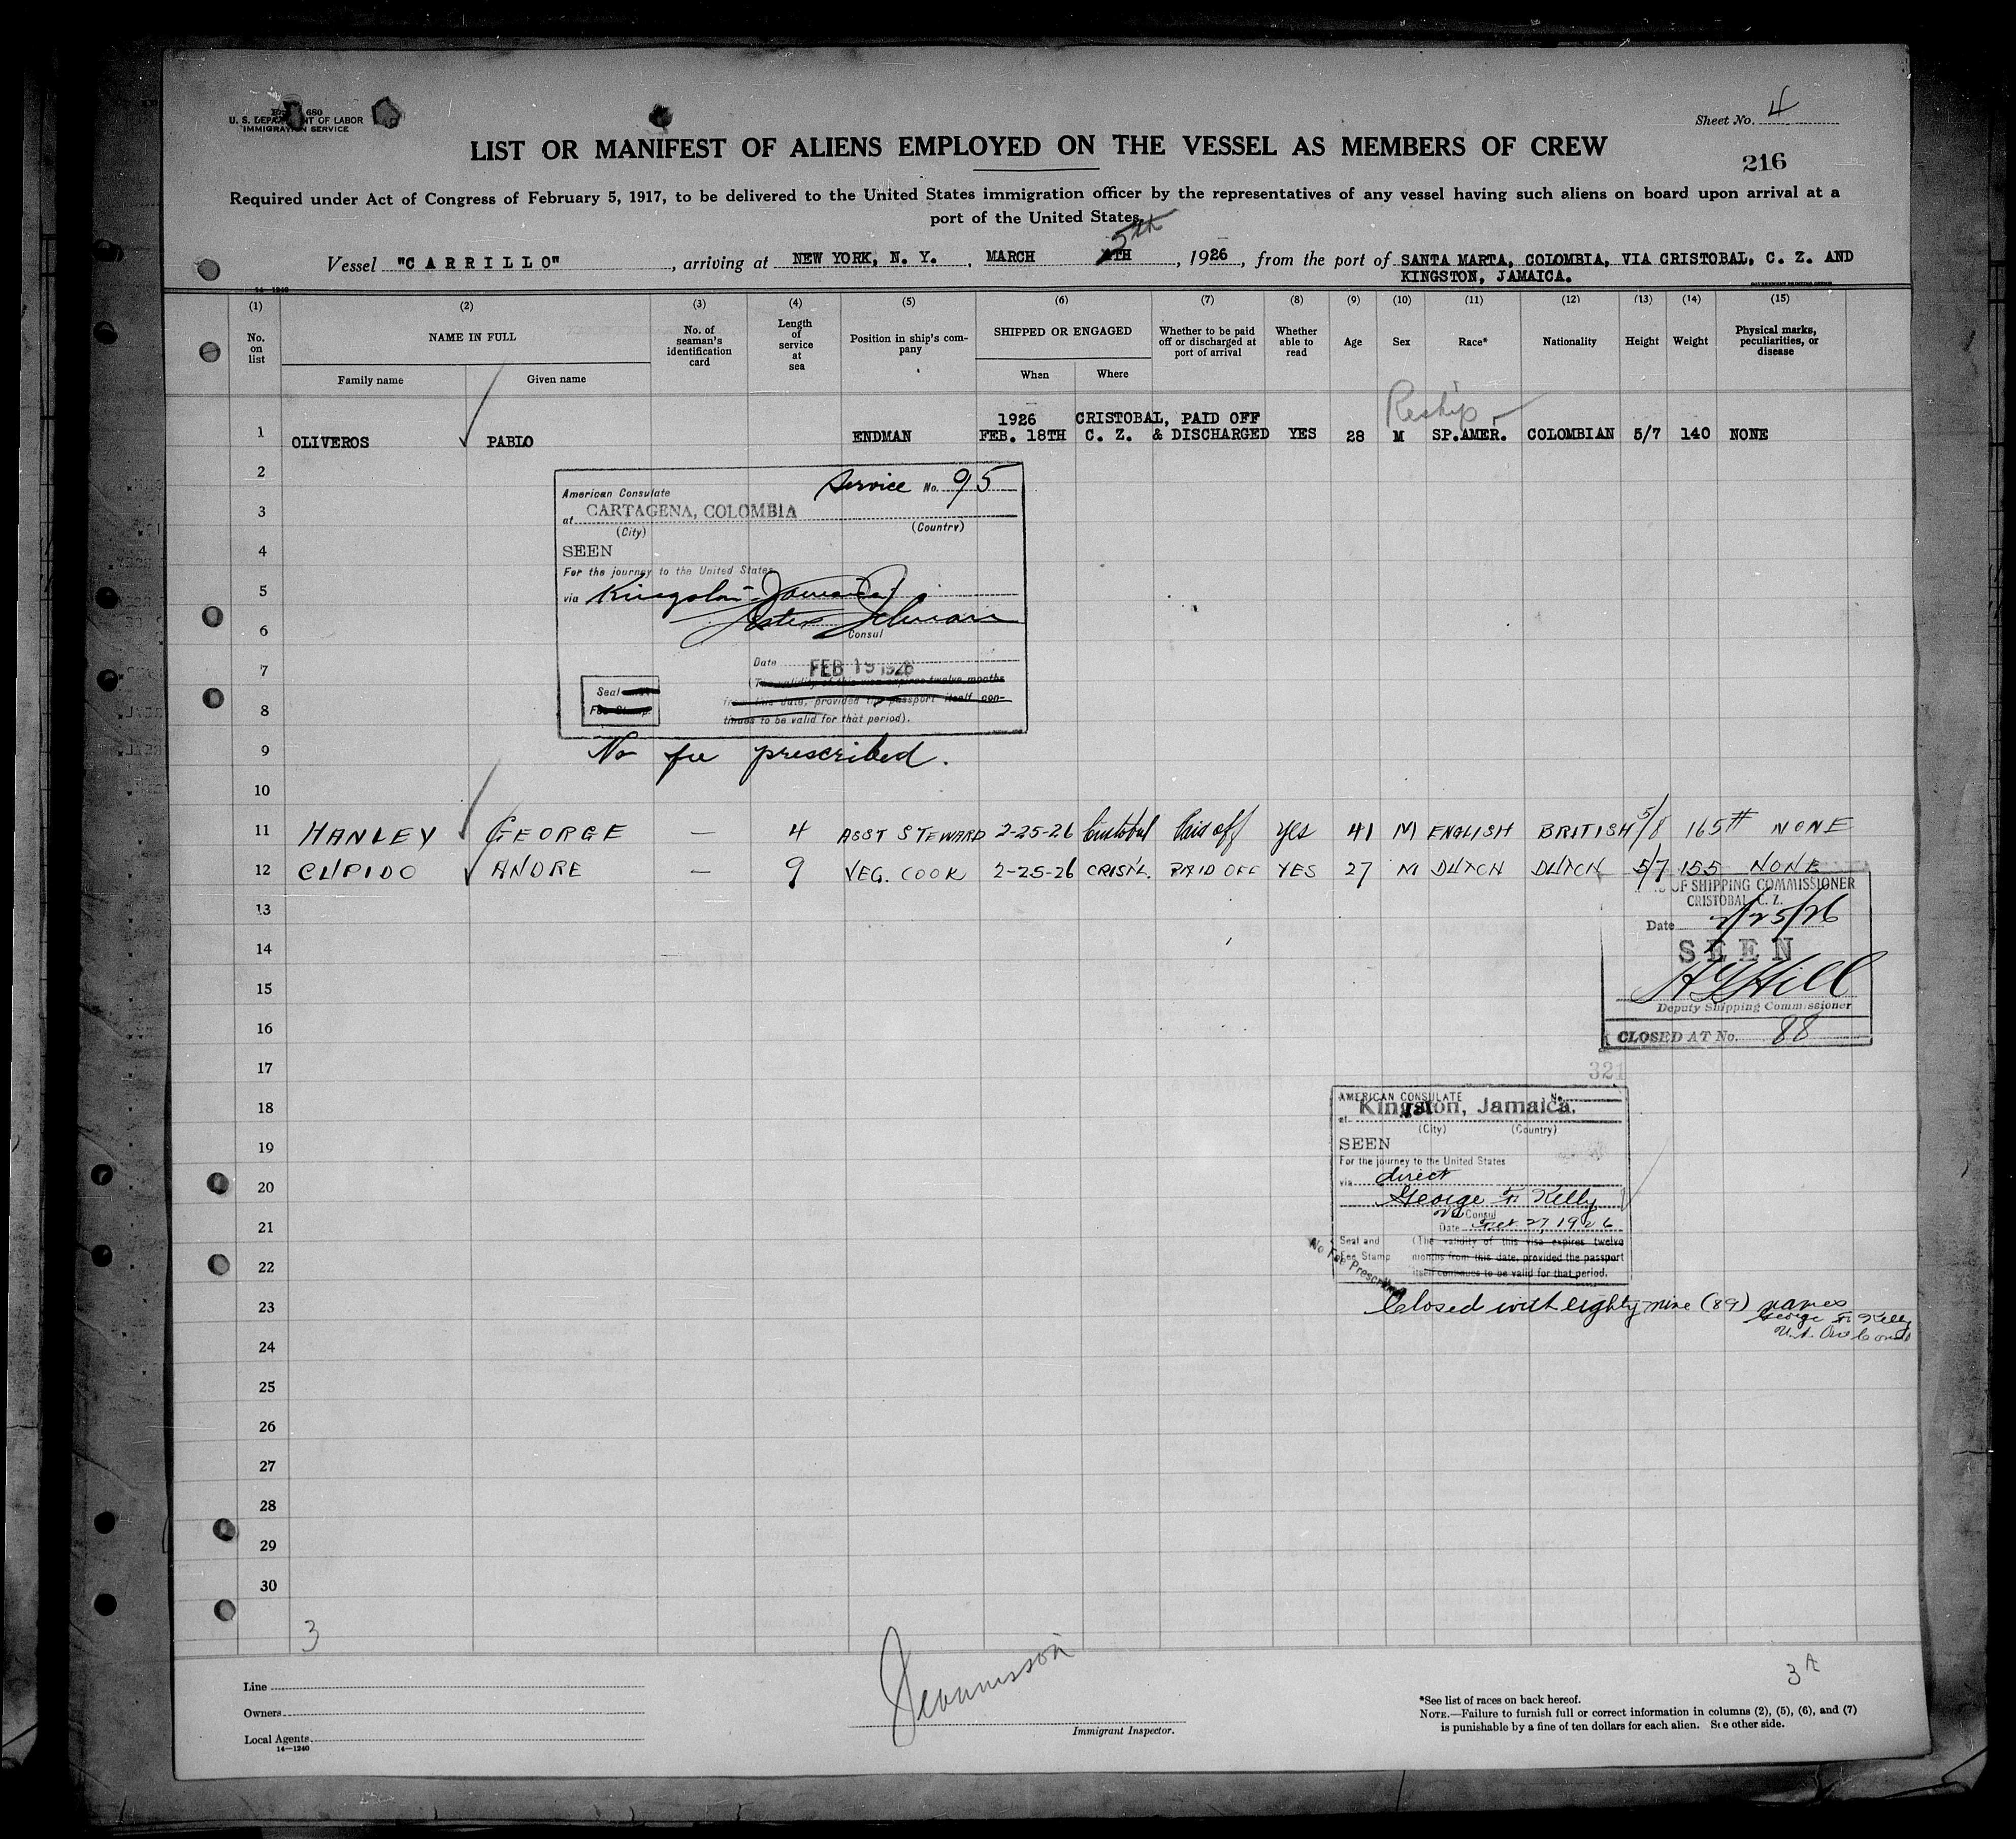 680
U. S. DEPARTMENT OF LABOR
IMMIGRATION SERVICE
Sheet No. 4
LIST OR MANIFEST OF ALIENS EMPLOYED ON THE VESSEL AS MEMBERS OF CREW
216
Required under Act of Congress of February 5, 1917, to be delivered to the United States immigration officer by the representatives of any vessel having such aliens on board upon arrival at a
port of the United States.
Vessel "CARRILLO", arriving at NEW YORK, N. Y., MARCH 5th, 1926, from the port of SANTA MARTA, COLOMBIA, VIA CRISTOBAL, C. Z. AND
KINGSTON, JAMAICA.
14—1240
GOVERNMENT PRINTING OFFICE
(1) (2) (3) (4) (5) (6) (7) (8) (9) (10) (11) (12) (13) (14) (15)
No. on list
NAME IN FULL
Family name
Given name
No. of seaman's identification card
Length of service at sea
Position in ship's company
SHIPPED OR ENGAGED
When
Where
Whether to be paid off or discharged at port of arrival
Whether able to read
Age
Sex
Race*
Nationality
Height
Weight
Physical marks, peculiarities, or disease
Reship
1926 CRISTOBAL, PAID OFF
1 OLIVEROS PABLO ENDMAN FEB. 18TH C. Z. & DISCHARGED YES 28 M SP.AMER. COLOMBIAN 5/7 140 NONE
2
American Consulate Service No. 95
3
at CARTAGENA, COLOMBIA
(City) (Country)
4
SEEN
For the journey to the United States
5
via Kingston Jamaica
6
Consul
7
Date FEB 19 1926
(The validity of this visa expires twelve months
Seal
from this date, provided the passport itself con-
Fee Stamp.
8
tinues to be valid for that period).
9
No fee prescribed.
10
11 HANLEY GEORGE — 4 ASST STEWARD 2-25-26 Cristobal Paid off yes 41 M ENGLISH BRITISH 5/8 165# NONE
12 CUPIDO ANDRE — 9 VEG. COOK 2-25-26 CRIST'L. PAID OFF YES 27 M DUTCH DUTCH 5/7 155 NONE
OF SHIPPING COMMISSIONER
CRISTOBAL, C. Z.
13
Date 2/25/26
14
SEEN
15
Hill
Deputy Shipping Commissioner
16
CLOSED AT No. 88
17
321
AMERICAN CONSULATE No.
18
at Kingston, Jamaica.
(City) (Country)
19
SEEN
For the journey to the United States
20
via direct
George F. Kelly
21
Consul
Date 27, 1926
Seal and (The validity of this visa expires twelve
22
Fee Stamp months from this date, provided the passport
itself continues to be valid for that period.
No Fee Prescribed
23
Closed with eighty nine (89) names
George F. Kelly
24
25
26
27
28
29
30
3
3A
Line
Owners
Local Agents
14—1240
Immigrant Inspector.
*See list of races on back hereof.
NOTE.—Failure to furnish full or correct information in columns (2), (5), (6), and (7)
is punishable by a fine of ten dollars for each alien. See other side.